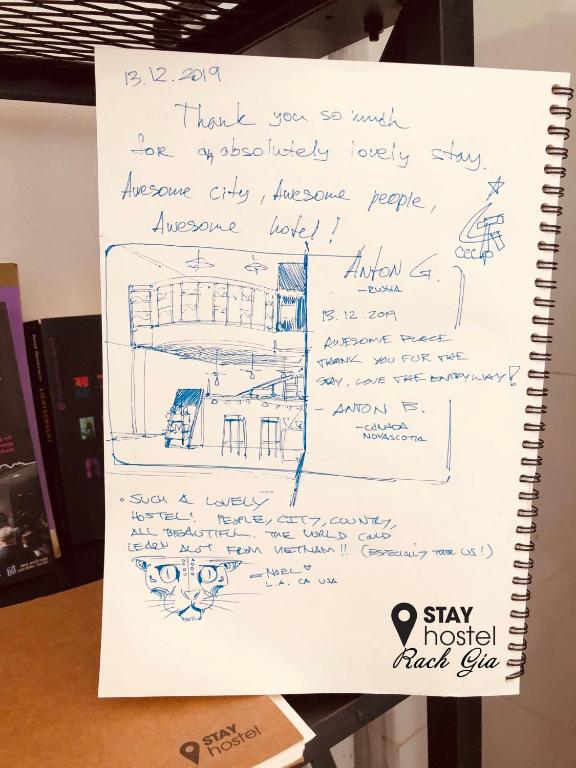 13.12.2019
Thank you so much
for an absolutely lovely stay.
Awesome city, Awesome people,
Awesome hotel!
CCCP
ANTON G.
- RUSSIA
13.12.2019
AWESOME PLACE
THANK YOU FOR THE
STAY, LOVE THE ENTRYWAY!
- ANTON B.
- CANADA
NOVASCOTIA
• SUCH A LOVELY
HOSTEL! PEOPLE, CITY, COUNTRY,
ALL BEAUTIFUL. THE WORLD COULD
LEARN ALOT FROM VIETNAM!! (ESPECIALLY THE US!)
- NOEL
L.A. CA USA
STAY
hostel
Rach Gia
STAY
hostel